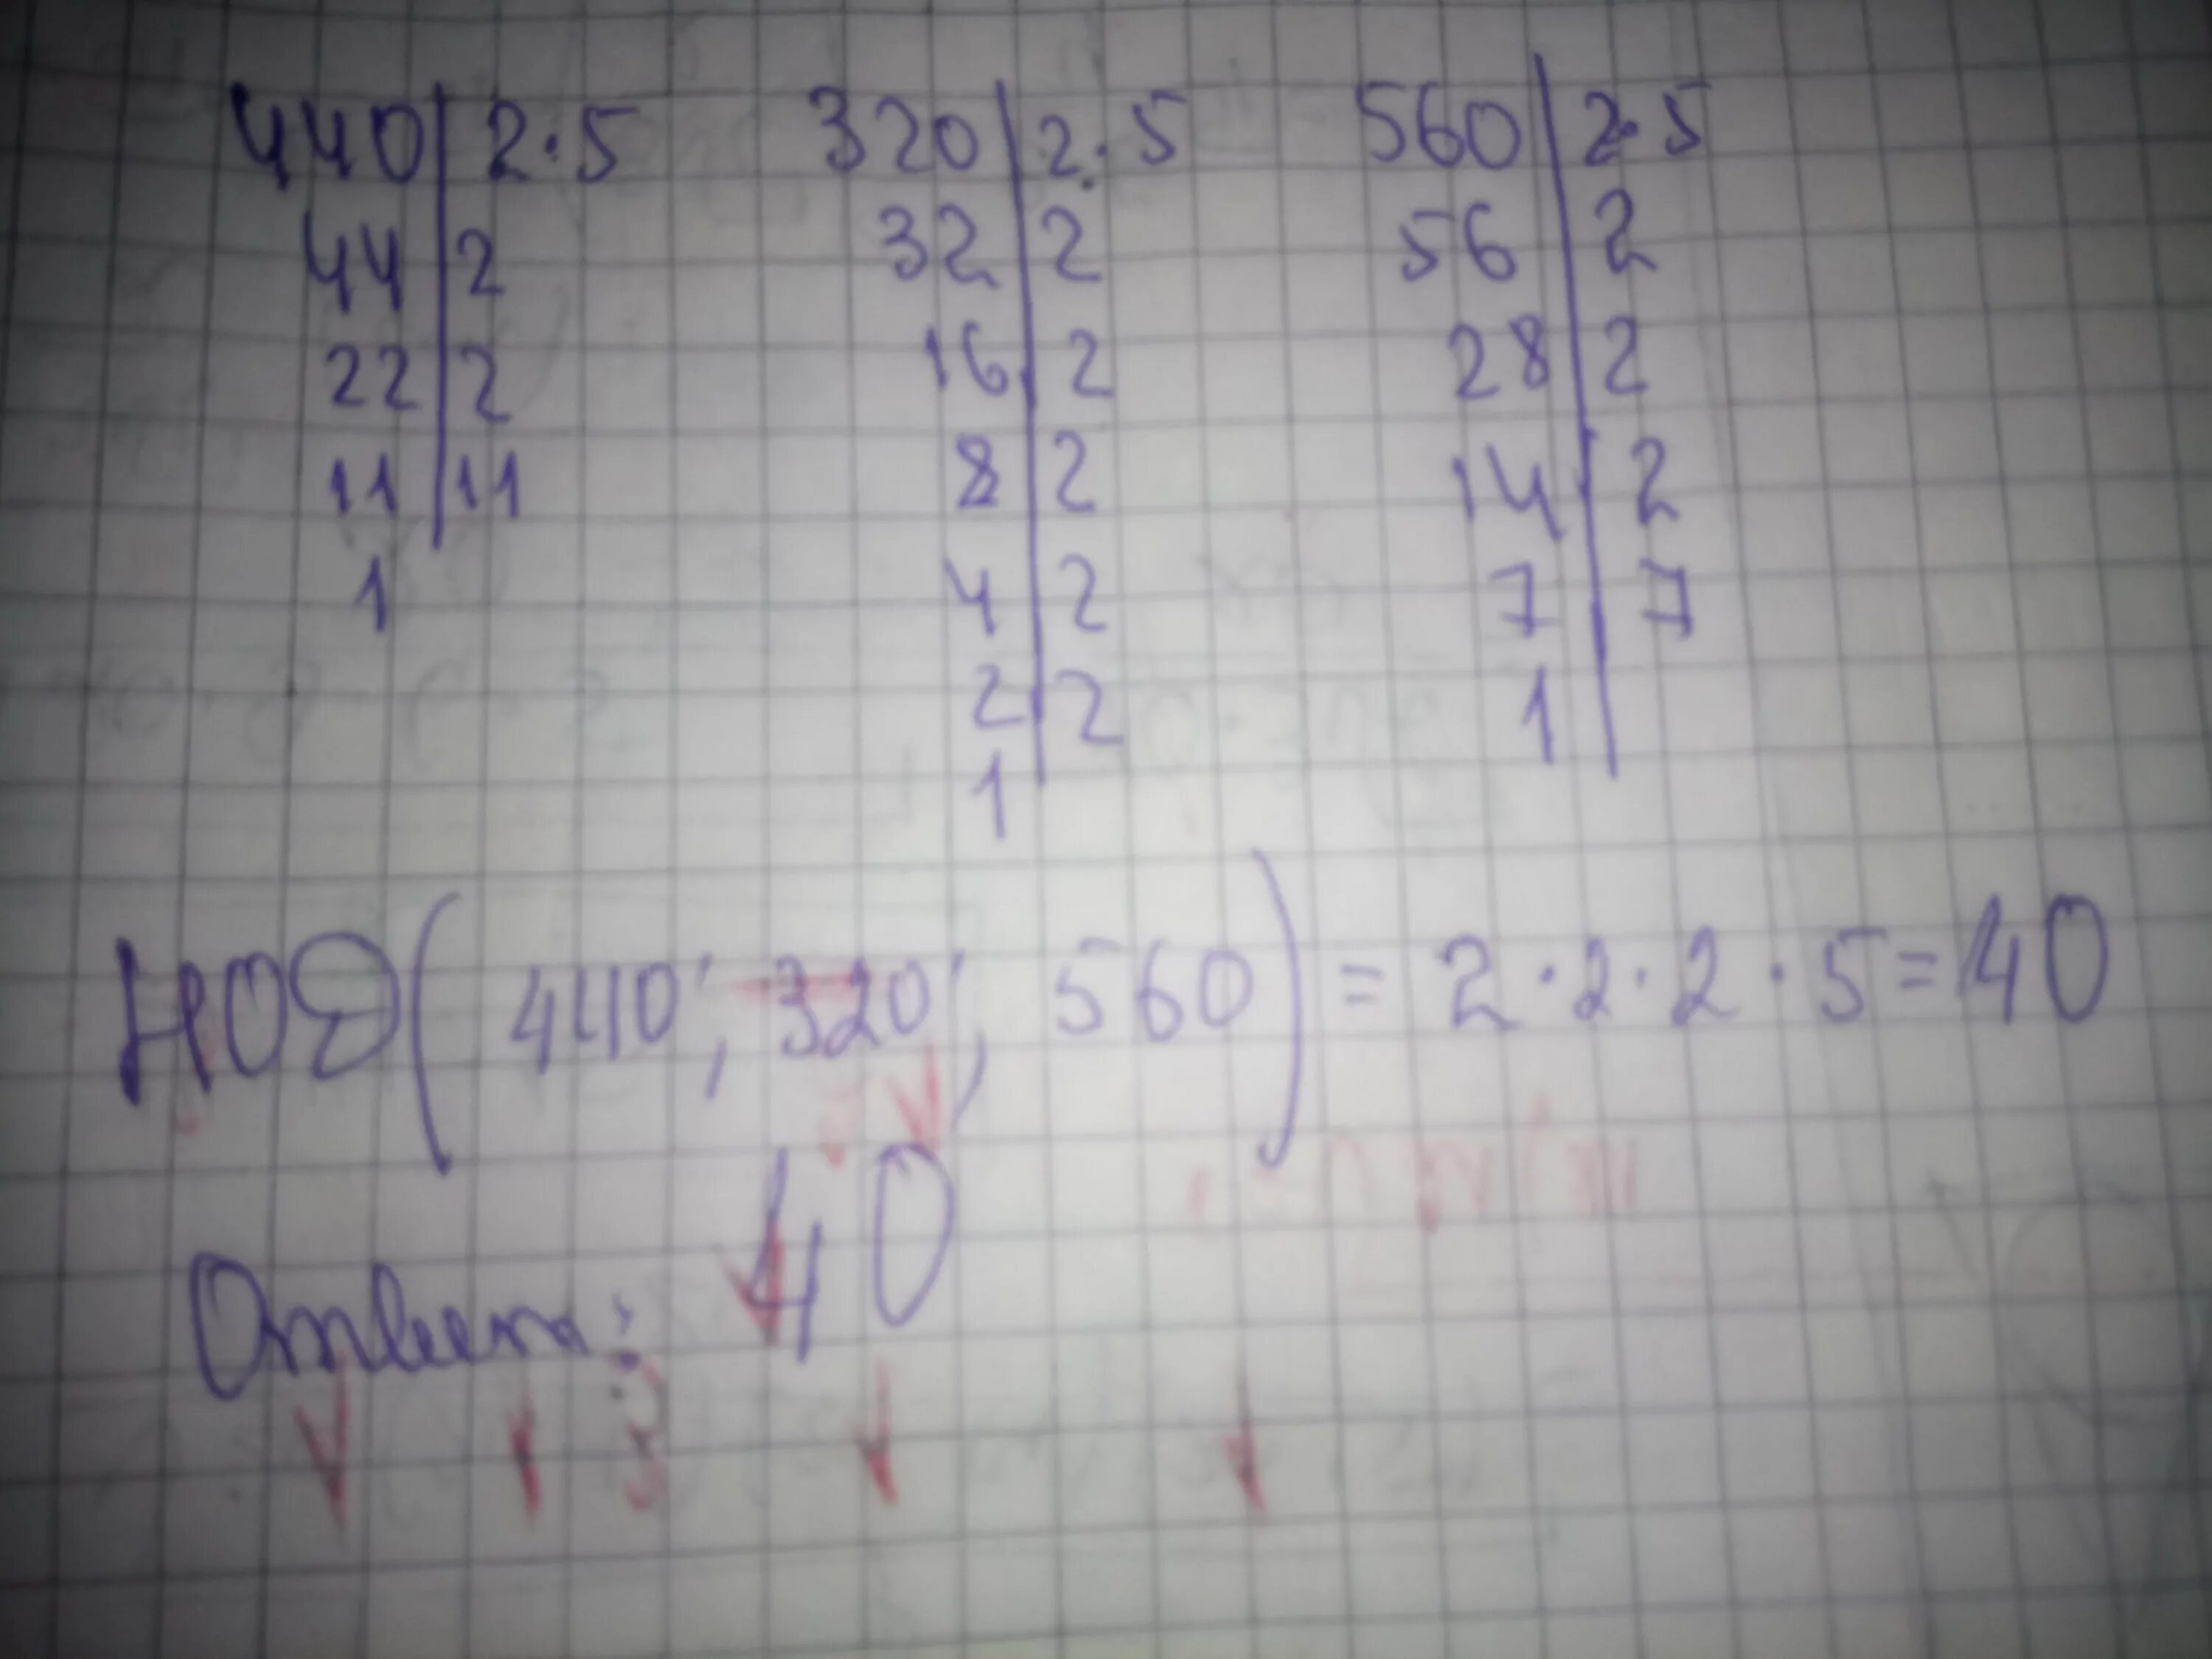 440 | 2·5   320 | 2·5   560 | 2·5
44 | 2   32 | 2   56 | 2
22 | 2   16 | 2   28 | 2
11 | 11   8 | 2   14 | 2
1   4 | 2   7 | 7
2 | 2   1
1
НОД(440; 320; 560) = 2·2·2·5=40
Ответ: 40